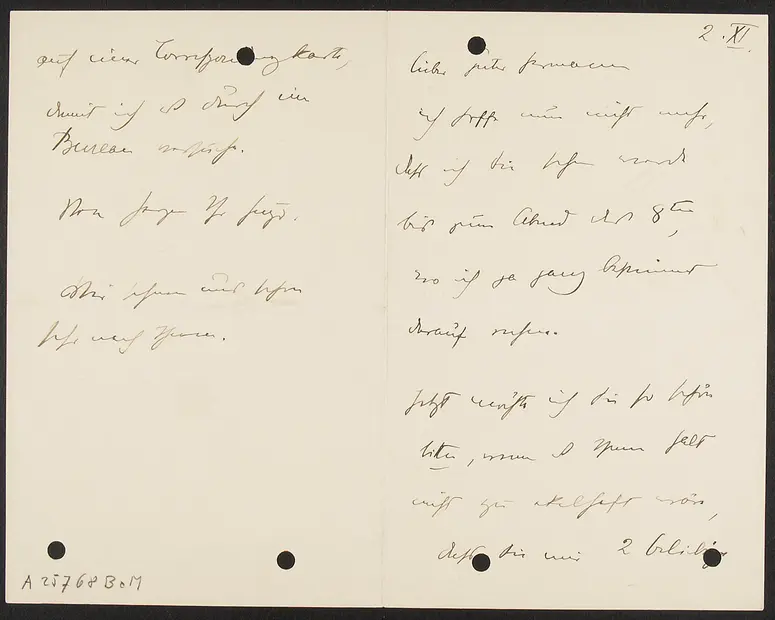 2. XI.
lieber guter Hermann
ich hoffe nun nicht mehr,
daß ich Sie sehen werde
bis zum Abend des 8ten,
wo ich ja ganz bestimmt
darauf rechne.
Jetzt möchte ich Sie so schön
bitten, wenn es Ihnen halt
nicht zu ekelhaft wäre,
daß Sie mir 2 beliebige
auf einer Correspondenzkarte,
damit ich es durch ein
Bureau versuche.
Ihr Hugo.
Wir sehnen uns schon
sehr nach Ihnen.
A 25768 BoM